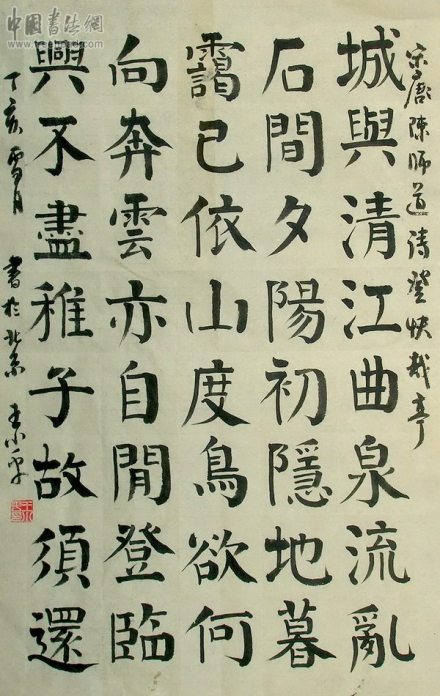 中國書法網
宋唐陳師道詩登快哉亭
城與清江曲泉流亂
石間夕陽初隱地暮
靄已依山度鳥欲何
向奔雲亦自閒登臨
興不盡稚子故須還
丁亥雪月 書於北京